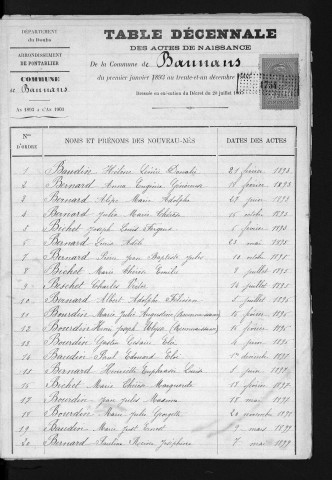 DÉPARTEMENT
du Doubs
ARRONDISSEMENT
DE PONTARLIER
COMMUNE
de Bannans
AN 1893 A L'AN 1903
TABLE DÉCENNALE
DES ACTES DE NAISSANCE
De la Commune de Bannans
du premier janvier 1893 au trente-et-un décembre
Dressée en exécution du Décret du 20 juillet
Nos D'ORDRE NOMS ET PRÉNOMS DES NOUVEAU-NÉS DATES DES ACTES
1 Baudin Hélène 21 février 1893
2 Bernard Anna Eugénie février 1893
3 Bernard Marie Adolphe 29 juin 1893
4 Bernard Julia Marie 16 octobre 1893
5 Bichet Joseph Louis février 1895
6 Bernard Louis 23 mai 1895
7 Bernard Jean Baptiste Jules 10 octobre 1895
8 Bichet Marie Thérèse Emilie 8 juillet 1895
9 Beschet Charles Victor juillet 1895
10 Bernard Albert Adolphe 5 juillet 1895
11 Bourdin Marie Julie Augustine 15 février 1896
12 Bourdin Henri Joseph 15 février 1896
13 Bourdin Gaston Césaire Eloi juin 1896
14 Baudin Paul Edmond Eloi décembre 1897
15 Bernard Henriette Euphrasie Louise 1 juin 1897
16 Bichet Marie Thérèse Marguerite 13 février 1897
17 Bourdin Jean Jules Maxime 18 mai 1897
18 Bourdin Marie Julie Georgette 20 novembre 1897
19 Baudin Marie Just Ernest 9 mars 1899
20 Bernard Pauline Joséphine 7 mai 1899